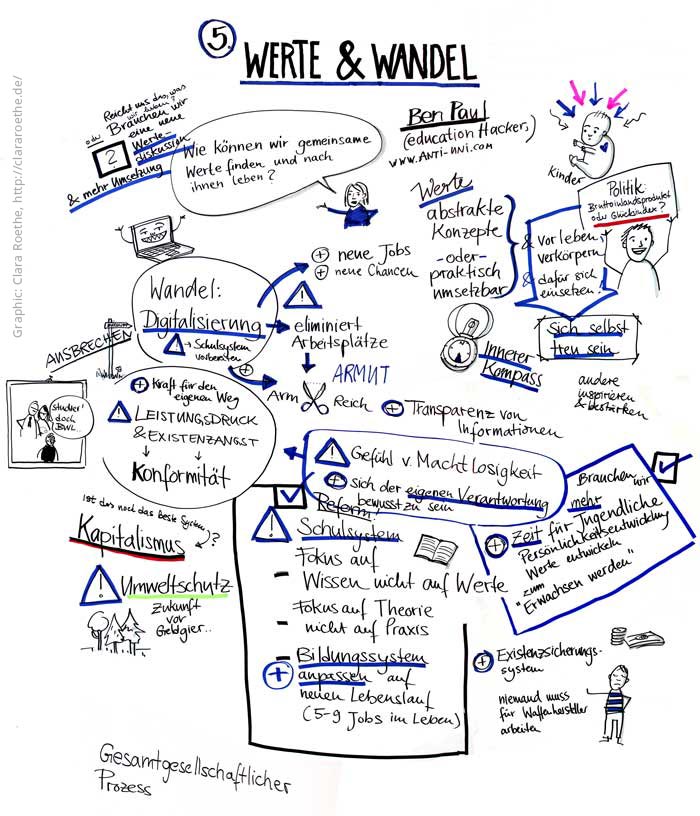 Graphic: Clara Roethe, http://clararoethe.de/
5.
WERTE & WANDEL
Reicht uns das, was
wir haben?
oder Brauchen wir
eine neue
Werte-
diskussion
?
& mehr Umsetzung
Wie können wir gemeinsame
Werte finden und nach
ihnen leben?
Ben Paul
(education Hacker,)
www.ANTI-UNI.com
Kinder
Politik:
Bruttoinlandsprodukt
oder Glücksindex?
Werte
abstrakte
Konzepte
-oder-
praktisch
umsetzbar
& vorleben
verkörpern
& dafür sich
einsetzen!
Sich selbst
treu sein
andere
inspirieren
& bestärken
Innerer
Kompass
Wandel:
Digitalisierung
! → Schulsystem
vorbereiten
+ neue Jobs
+ neue Chancen
!
eliminiert
Arbeitsplätze
ARMUT
Arm
Reich
+
+ Transparenz von
Informationen
AUSBRECHEN
Studier'
doch
BWL..
+ Kraft für den
eigenen Weg
! LEISTUNGSDRUCK
& EXISTENZANGST
Konformität
! Gefühl v. Machtlosigkeit
+ sich der eigenen Verantwortung
bewusst zu sein
Brauchen wir
mehr
+ Zeit für Jugendliche
Persönlichkeitsentwicklung
Werte entwickeln
zum
"Erwachsen werden"
Ist das noch das beste System?
Kapitalismus
! Umweltschutz
Zukunft
vor
Geldgier..
Reform!
! Schulsystem
Fokus auf
- Wissen nicht auf Werte
Fokus auf Theorie
- nicht auf Praxis
- Bildungssystem
+ anpassen auf
neuen Lebenslauf
(5-9 Jobs im Leben)
+ Existenzsicherungs-
system
niemand muss
für Waffenhersteller
arbeiten
Gesamtgesellschaftlicher
Prozess